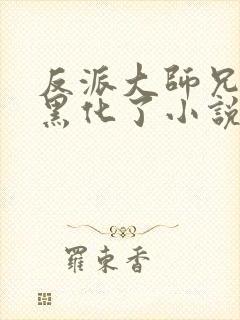 反派大師兄
黑化了小說
羅東香